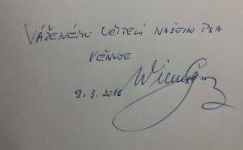 VÁŽENÉMU UČITELI NAŠEHO PSA
VĚNUJE
2.3.2016